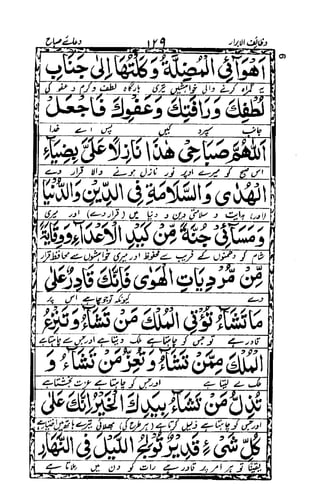 وظائف الابرار ۱۲۹ دعائے صباح
اَهْوَآئِی الْمُضِلَّةَ وَكَلْتُهَا اِلٰى جَنَابِ
یہ گمراہ کرنے والی خواہشیں تیری بارگاہ لطف و کرم و عفو کی
لُطْفِكَ وَرَاْفَتِكَ وَعَفْوِكَ فَاجْعَلِ
جانب سپرد کیں پس اے خدا
اَللّٰهُمَّ صَبَاحِیْ هٰذَا نَازِلًا عَلَیَّ بِضِیَآءِ
اس صبح کو میرے اوپر نور نازل ہونے والا قرار دے
الْهُدٰى وَالسَّلَامَةِ فِی الدِّیْنِ وَالدُّنْیَا
(اور) ہدایت و سلامتی دین و دنیا میں (قرار دے) اور میری
وَمَسَآئِیْ جُنَّةً مِّنْ كَیْدِ الْاَعْدَآءِ وَوِقَایَةً
شام کو دشمنوں کے فریب سے محفوظ اور میری خواہشوں سے محافظ قرار
مِّنْ مُرْدِیَاتِ الْهَوٰى فَاِنَّكَ قَادِرٌ عَلٰى
دے کیونکہ تو جو چاہے اس پر
مَا تَشَآءُ تُؤْتِی الْمُلْكَ مَنْ تَشَآءُ وَتَنْزِعُ
قادر ہے تو جس کو چاہتا ہے ملک دیتا ہے اور جس سے چاہتا ہے
الْمُلْكَ مِمَّنْ تَشَآءُ وَتُعِزُّ مَنْ تَشَآءُ وَ
ملک لے لیتا ہے اور جس کو چاہتا ہے عزت بخشتا ہے
تُذِلُّ مَنْ تَشَآءُ بِیَدِكَ الْخَیْرُ اِنَّكَ عَلٰى
اور جس کو چاہتا ہے ذلیل کرتا ہے (ہر طرح کی) بھلائی تیرے ہاتھ میں ہے
كُلِّ شَیْءٍ قَدِیْرٌ تُوْلِجُ اللَّیْلَ فِی النَّهَارِ
یقیناً تو ہر امر پر قادر ہے رات کو دن میں ملاتا ہے